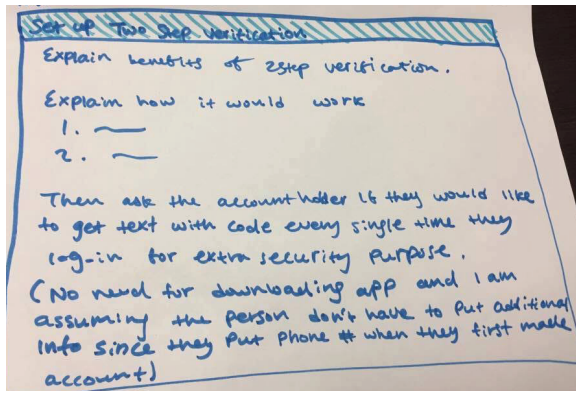 Set up Two Step Verification
Explain benefits of 2step verification.
Explain how it would work
1.
2.
Then ask the account holder if they would like
to get text with code every single time they
log-in for extra security purpose.
(No need for downloading app and I am
assuming the person don't have to put additional
info since they put phone # when they first made
account)